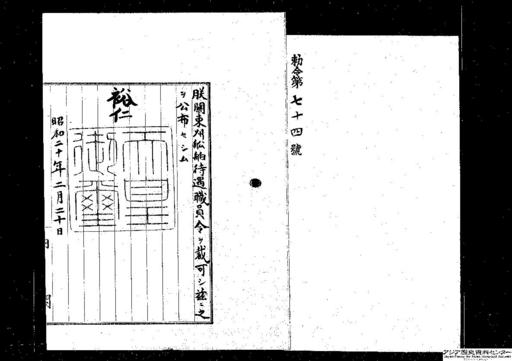 勅令第七十四號
朕關東州奏任待遇職員令ヲ裁可シ茲ニ之
ヲ公布セシム
裕仁
天皇御璽
昭和二十年二月二十日
アジア歴史資料センター